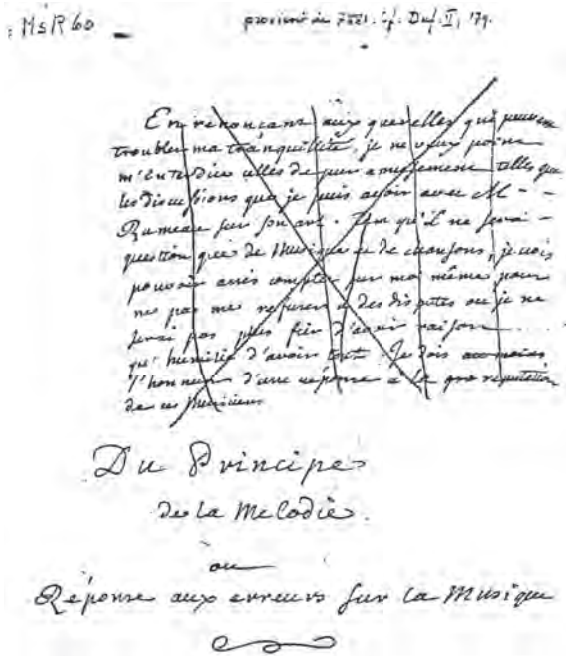 MsR 60
provient de 7881. cf. Duf. II, 179.
En renonçant aux querelles qui peuvent
troubler ma tranquillité, je ne veux point
m'interdire celles de pur amusement telles que
les discussions que je puis avoir avec M - -
Rameau sur son art. Tant qu'il ne sera -
question que de Musique et de chansons, je crois
pouvoir assés compter sur moi même pour
ne pas me refuser à des disputes où je ne
serai pas plus fier d'avoir raison
qu'humilié d'avoir tort. Je dois au moins
l'honneur d'une réponse à la réputation
de ce Musicien
Du Principe
de la Melodie.
ou
Réponse aux erreurs sur la Musique